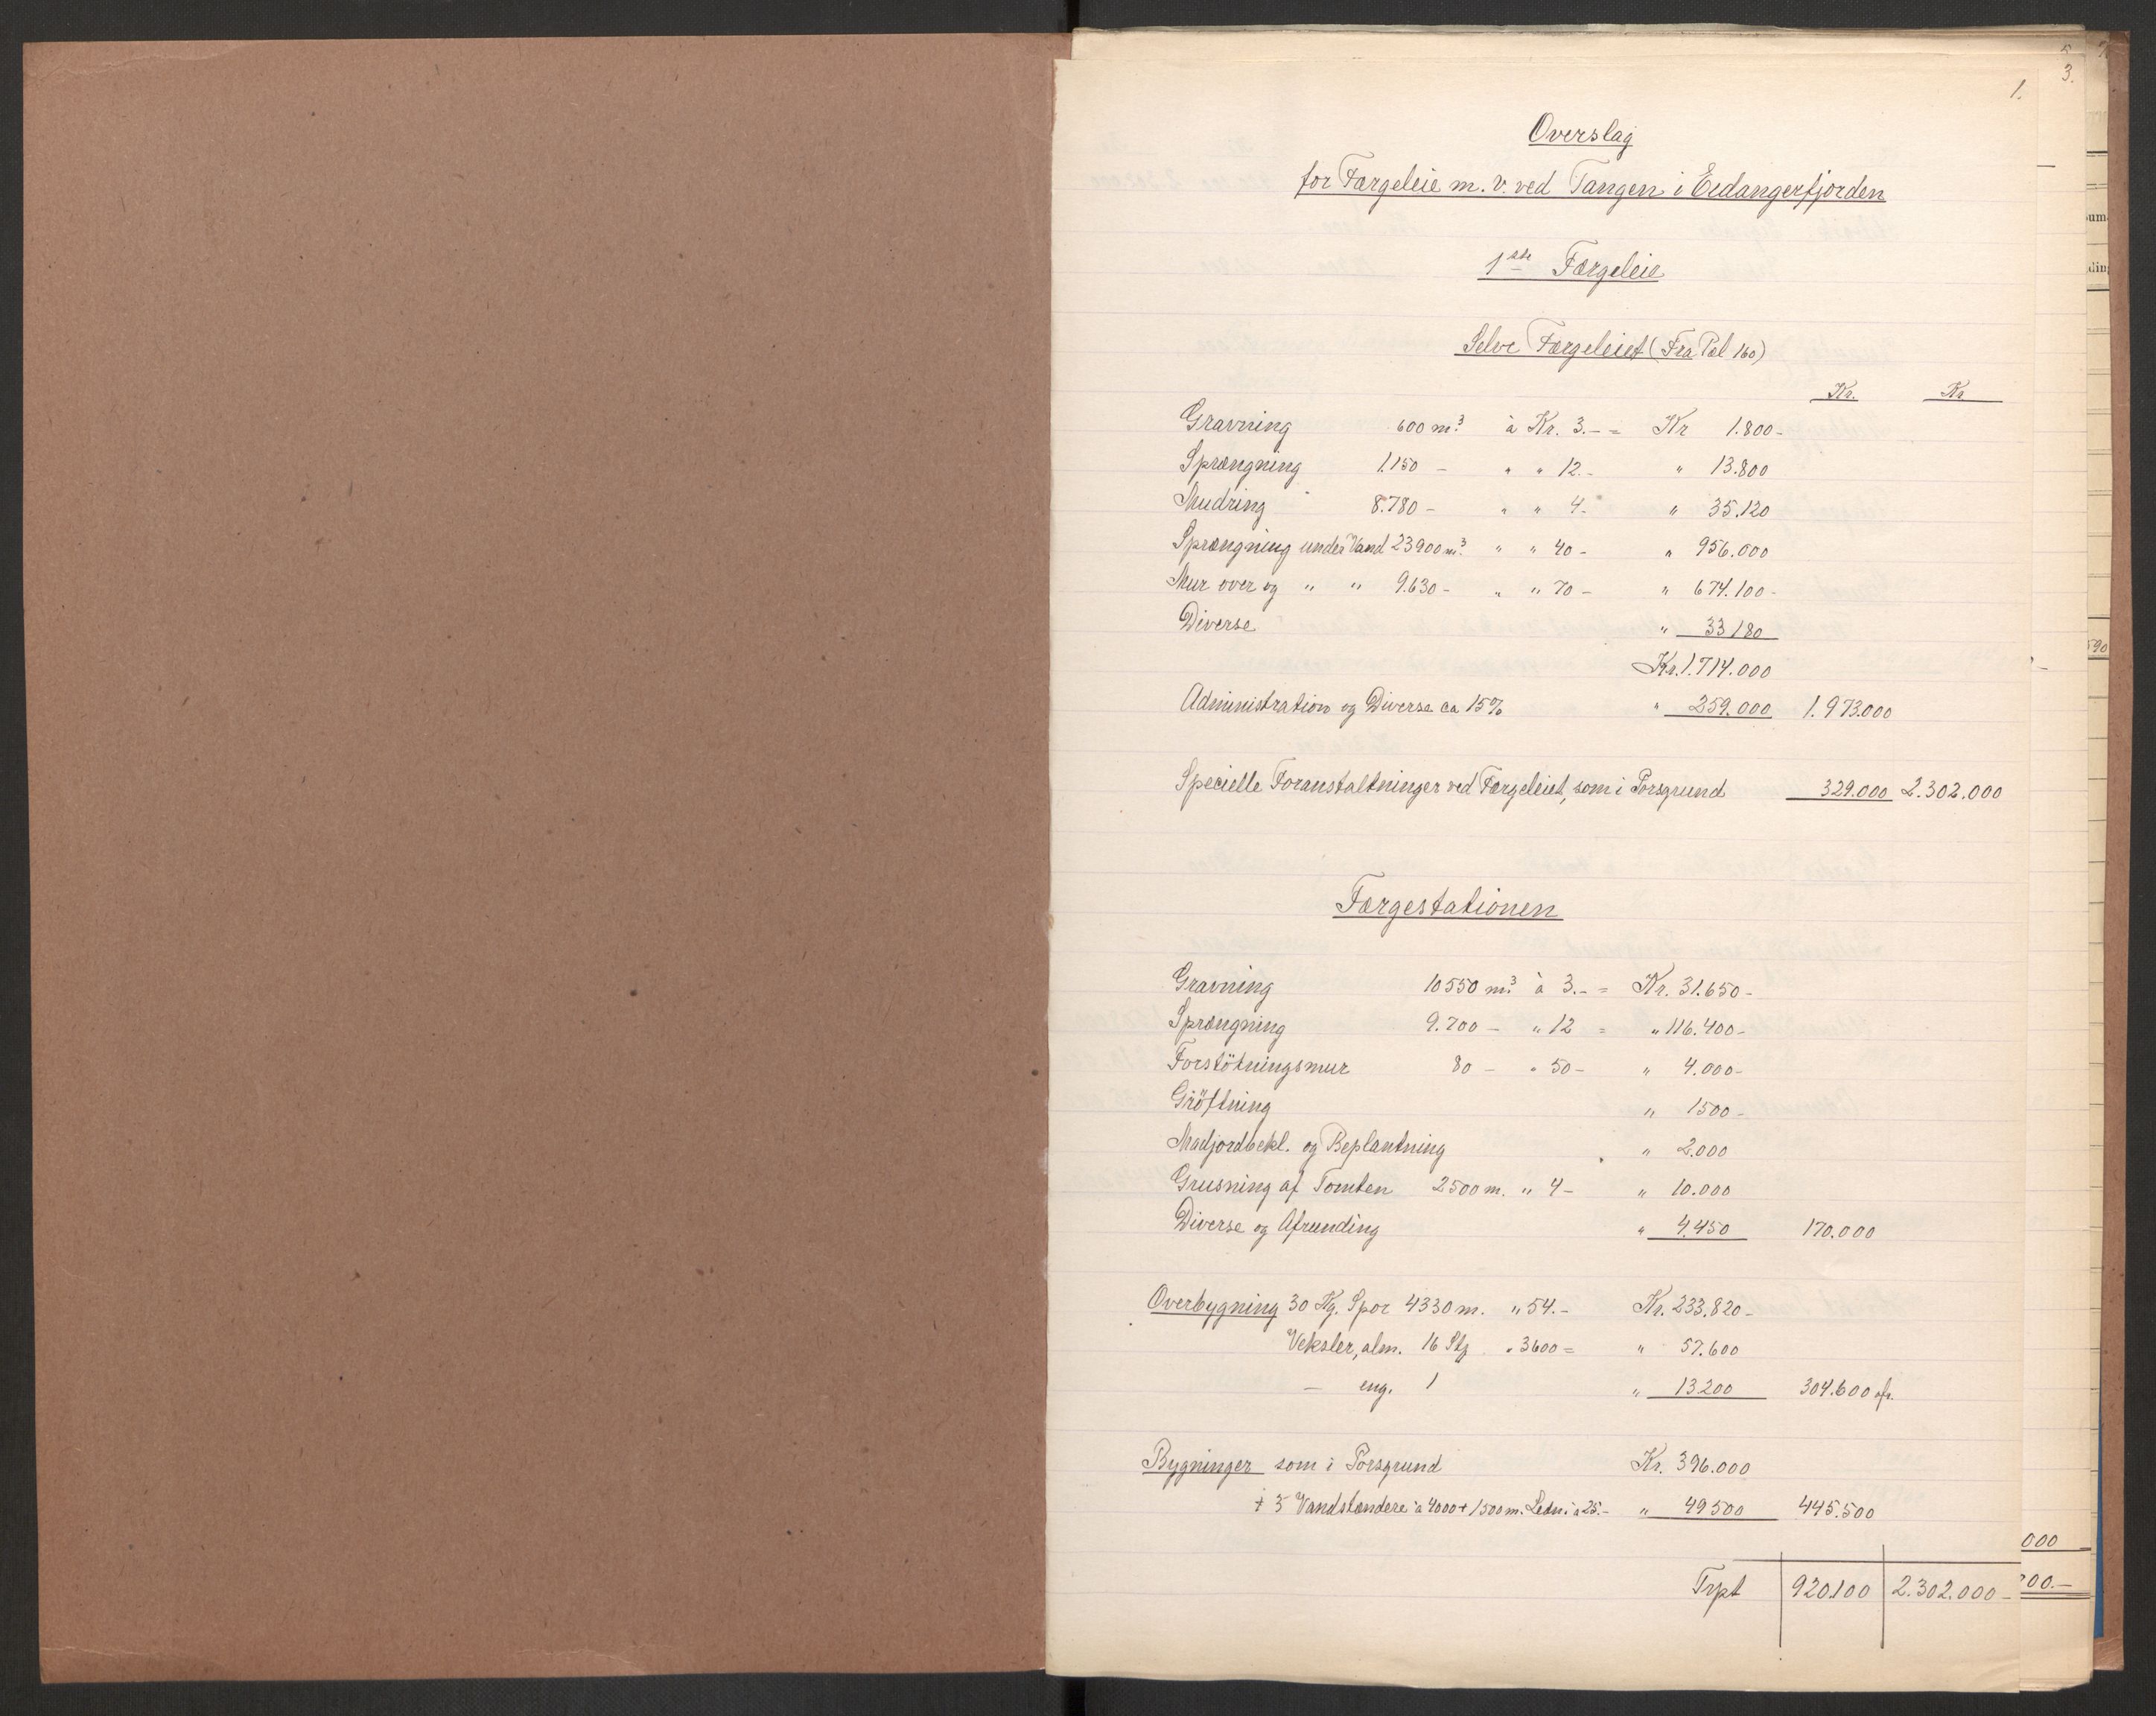 1.
3.
Overslag
for Færgeleie m.v. ved Tangen i Eidangerfjorden
1ste Færgeleie
Selve Færgeleiet (Fra Pel 160)
Kr. Kr
Gravning 600 m³ à Kr. 3.- = Kr 1.800-
Sprængning 1.150 - " " 12.- " 13.800
Mudring 8.780 - " " 4.- " 35.120
Sprængning under Vand 23900 m³ " " 40 - " 956.000
Mur over og " " 9.630 - " " 70 - " 674.100-
Diverse " 33180
Kr. 1.714.000
Administration og Diverse ca 15% " 259.000 1.973.000
Specielle Foranstaltninger ved Færgeleiet, som i Porsgrund 329.000 2.302.000
Færgestationen
Gravning 10550 m³ à 3.- = Kr. 31.650-
Sprængning 9.700 - " 12 = " 116.400-
Forstötningsmur 80 - " 50 - " 4.000-
Gröftning " 1500-
Madjordbekl. og Beplantning " 2.000
Grusning af Tomten 2500 m. " 4- " 10.000
Diverse og Afrunding " 4.450 170.000
Overbygning 30 Kg. Spor 4330 m. " 54.- Kr. 233.820-
Veksler, alm. 16 Stk " 3600 = " 57.600
- eng. 1 " 13200 304.600 afr.
Bygninger som i Porsgrund Kr. 396.000
+ 3 Vandstændere à 4000 + 1500 m. Ledn. à 25.- " 49500 445.500
000
Trpt 920.100 2.302.000-
00.-
um
din
590